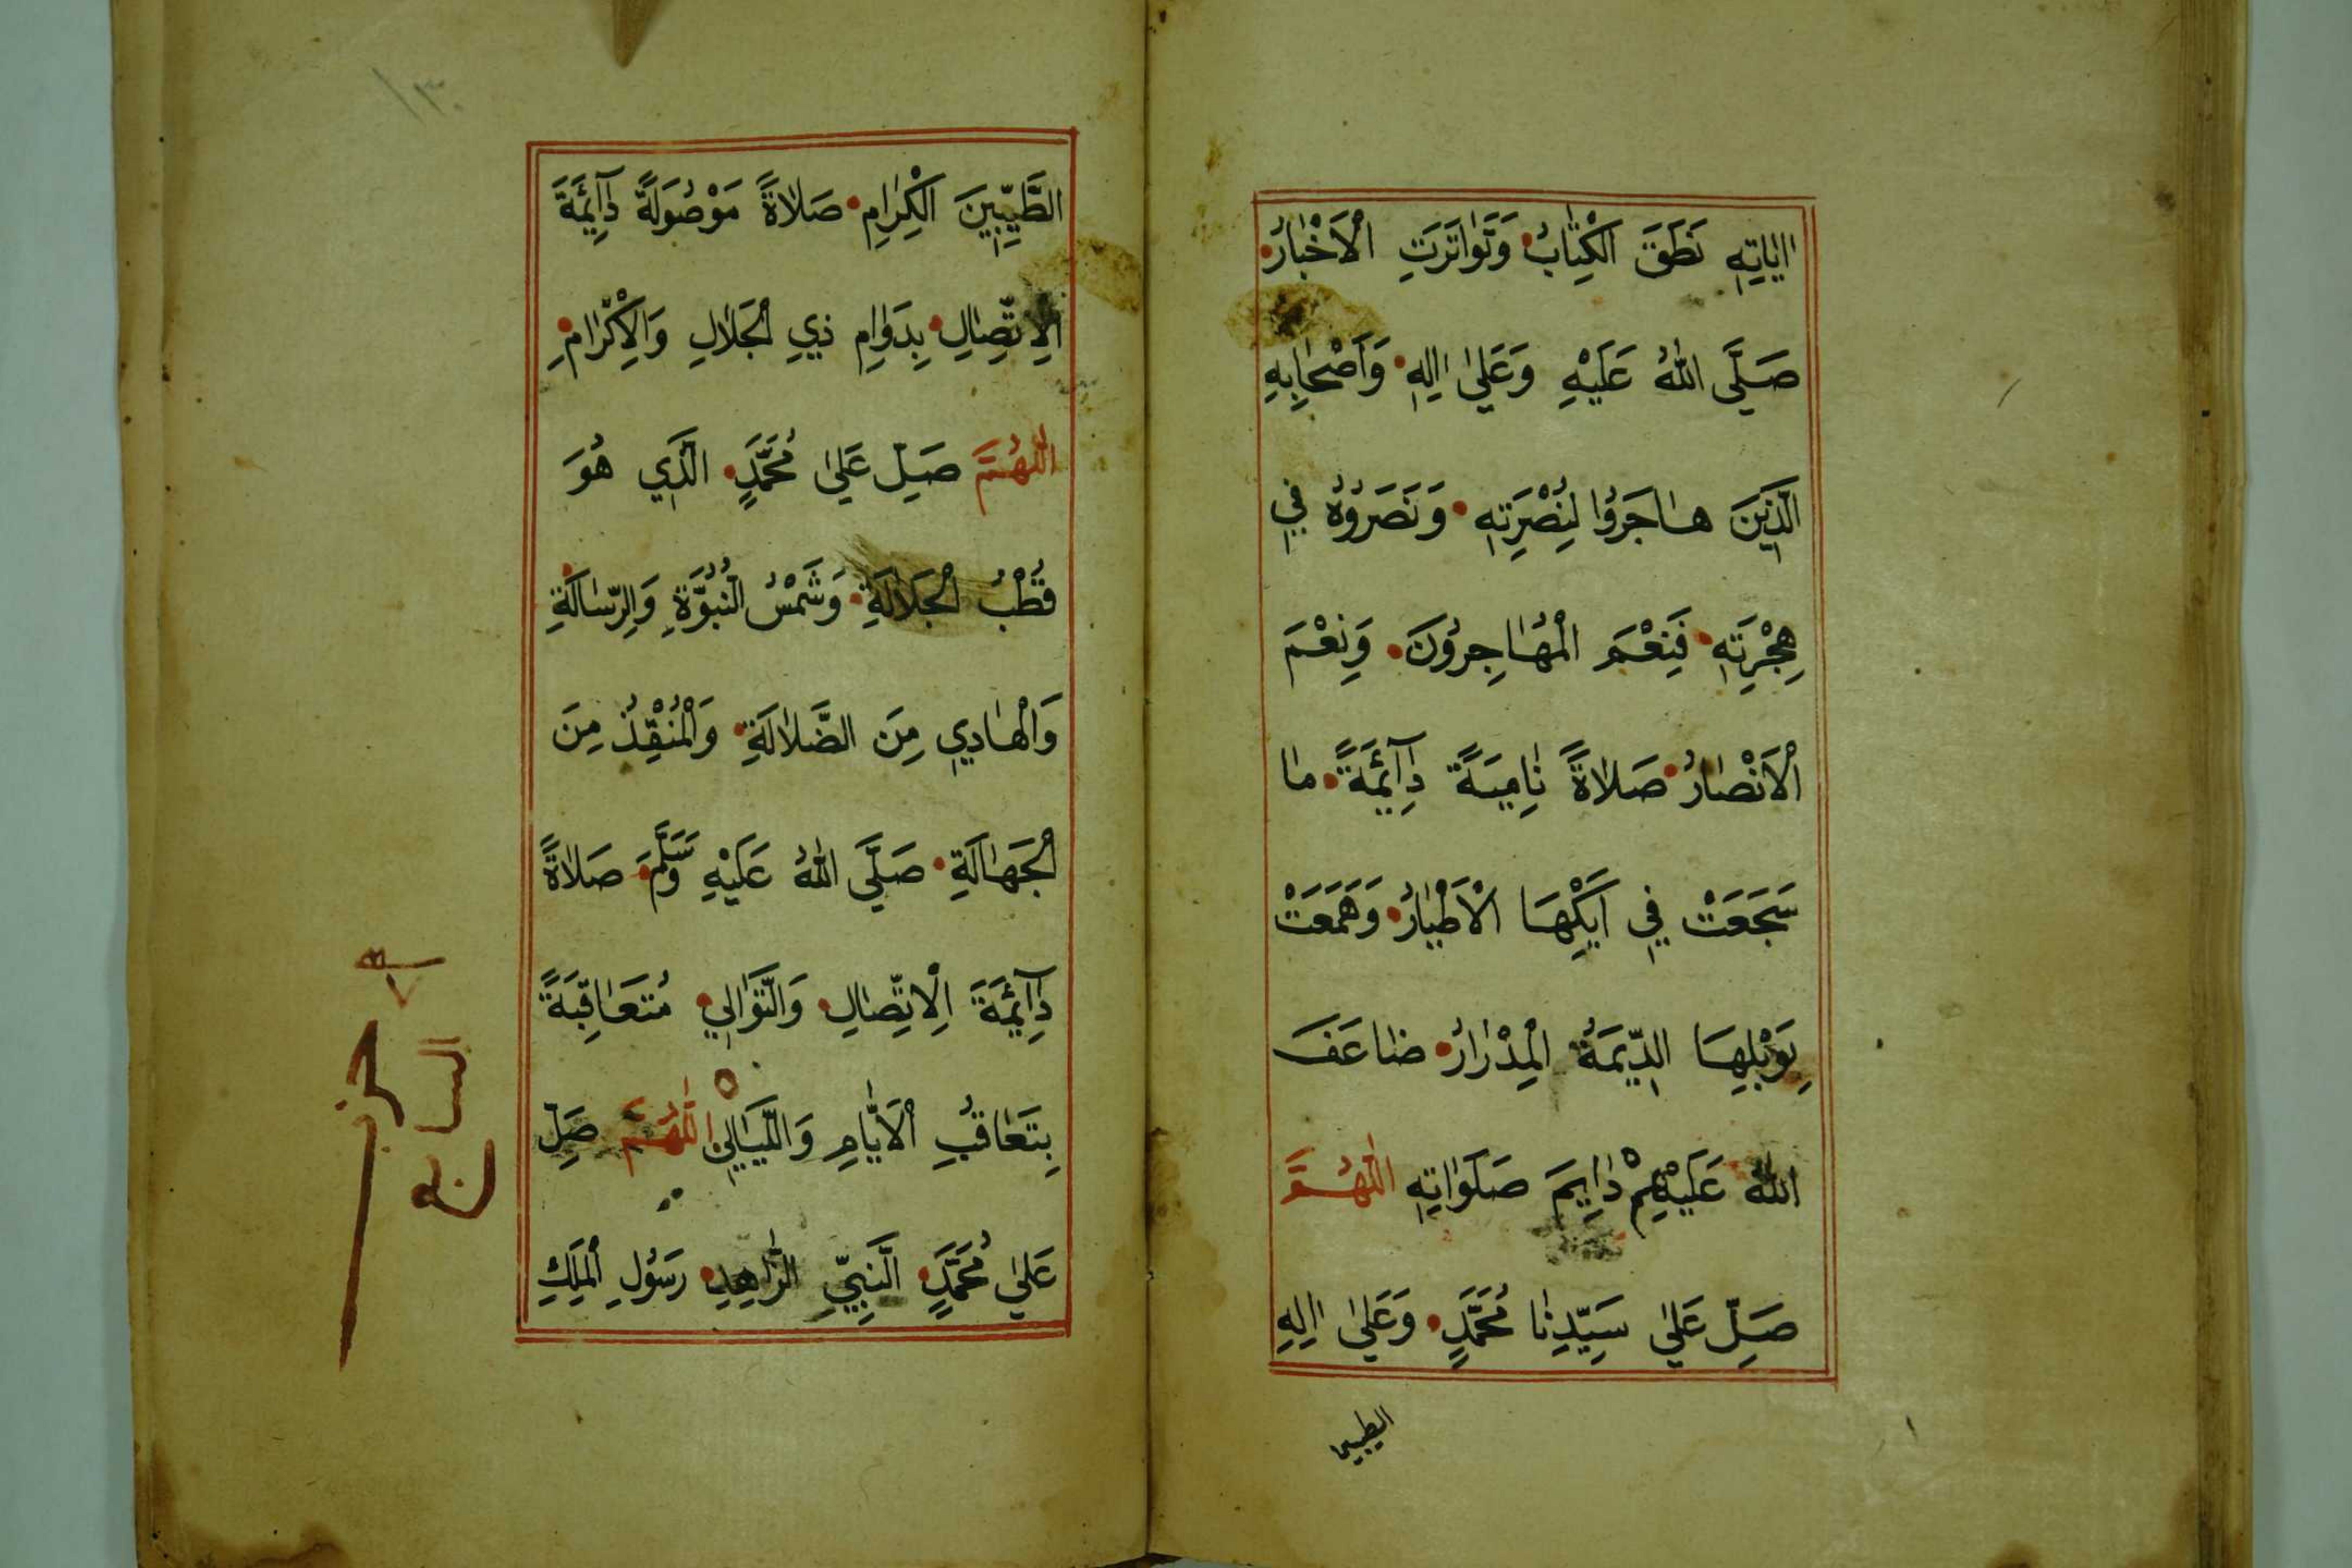 اٰيَاتِهِ نَطَقَ الْكِتَابُ وَتَوَاتَرَتِ الْاَخْبَارُ
صَلَّى اللّٰهُ عَلَيْهِ وَعَلٰى اٰلِهِ وَاَصْحَابِهِ
الَّذِينَ هَاجَرُوا لِنُصْرَتِهِ وَنَصَرُوهُ فِي
هِجْرَتِهِ فَنِعْمَ الْمُهَاجِرُونَ وَنِعْمَ
الْاَنْصَارُ صَلَاةً نَامِيَةً دَآئِمَةً مَا
سَجَعَتْ فِي اَيْكِهَا الْاَطْيَارُ وَهَمَعَتْ
بِوَبْلِهَا الدِّيمَةُ الْمِدْرَارُ ضَاعَفَ
اللّٰهُ عَلَيْهِمْ دَايِمَ صَلَوَاتِهِ اللّٰهُمَّ
صَلِّ عَلٰى سَيِّدِنَا مُحَمَّدٍ وَعَلٰى اٰلِهِ
الطيبين
١٣٠
الطَّيِّبِينَ الْكِرَامِ صَلَاةً مَوْصُولَةً دَآئِمَةَ
الْاِتِّصَالِ بِدَوَامِ ذِي الْجَلَالِ وَالْاِكْرَامِ
اَللّٰهُمَّ صَلِّ عَلٰى مُحَمَّدٍ الَّذِي هُوَ
قُطْبُ الْجَلَالَةِ وَشَمْسُ النُّبُوَّةِ وَالرِّسَالَةِ
وَالْهَادِي مِنَ الضَّلَالَةِ وَالْمُنْقِذُ مِنَ
الْجَهَالَةِ صَلَّى اللّٰهُ عَلَيْهِ وَسَلَّمَ صَلَاةً
دَآئِمَةَ الْاِتِّصَالِ وَالتَّوَالِي مُتَعَاقِبَةً
بِتَعَاقُبِ الْاَيَّامِ وَاللَّيَالِي اَللّٰهُمَّ صَلِّ
عَلٰى مُحَمَّدٍ النَّبِيِّ الزَّاهِدِ رَسُولِ الْمَلِكِ
حزب
السابع